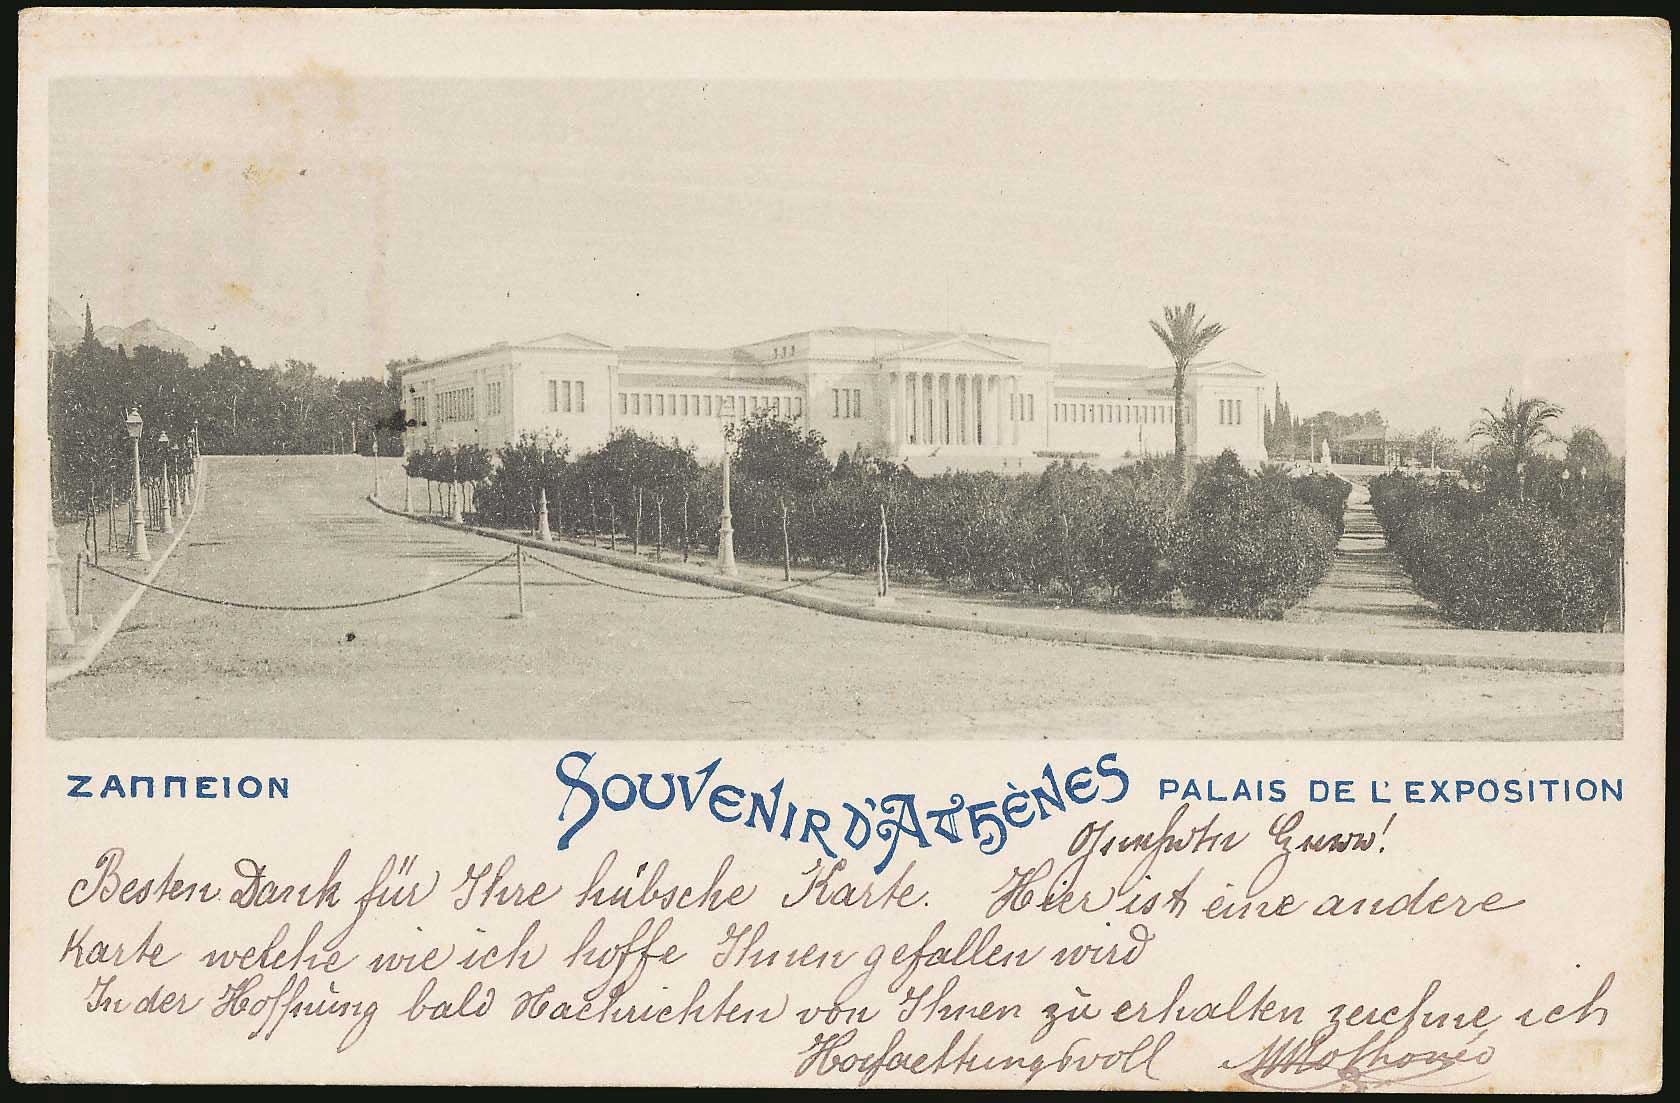 ΖΑΠΠΕΙΟΝ
SOUVENIR D'ATHÈNES
PALAIS DE L'EXPOSITION
Geehrter Herr!
Besten Dank für Ihre hübsche Karte. Hier ist eine andere
Karte welche wie ich hoffe Ihnen gefallen wird
In der Hoffnung bald Nachrichten von Ihnen zu erhalten zeichne ich
Hochachtungsvoll